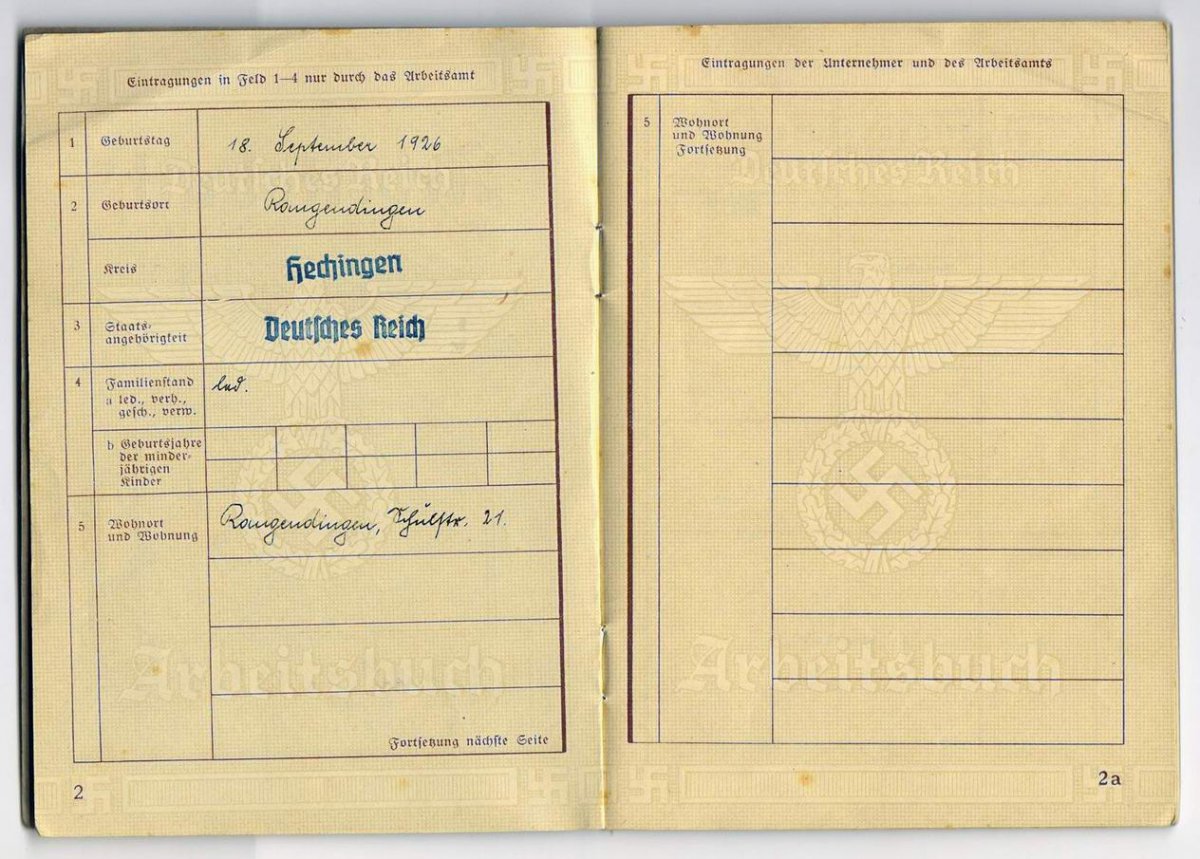 Eintragungen in Feld 1—4 nur durch das Arbeitsamt
1 Geburtstag 18. September 1926
Deutsches Reich
2 Geburtsort Rangendingen
Kreis Hechingen
3 Staats-
angehörigkeit Deutsches Reich
4 Familienstand led.
a led., verh.,
gesch., verw.
b Geburtsjahre
der minder-
jährigen
Kinder
5 Wohnort
und Wohnung Rangendingen, Schulstr. 21.
Arbeitsbuch
Fortsetzung nächste Seite
2
Eintragungen der Unternehmer und des Arbeitsamts
5 Wohnort
und Wohnung
Fortsetzung
Deutsches Reich
Arbeitsbuch
2a